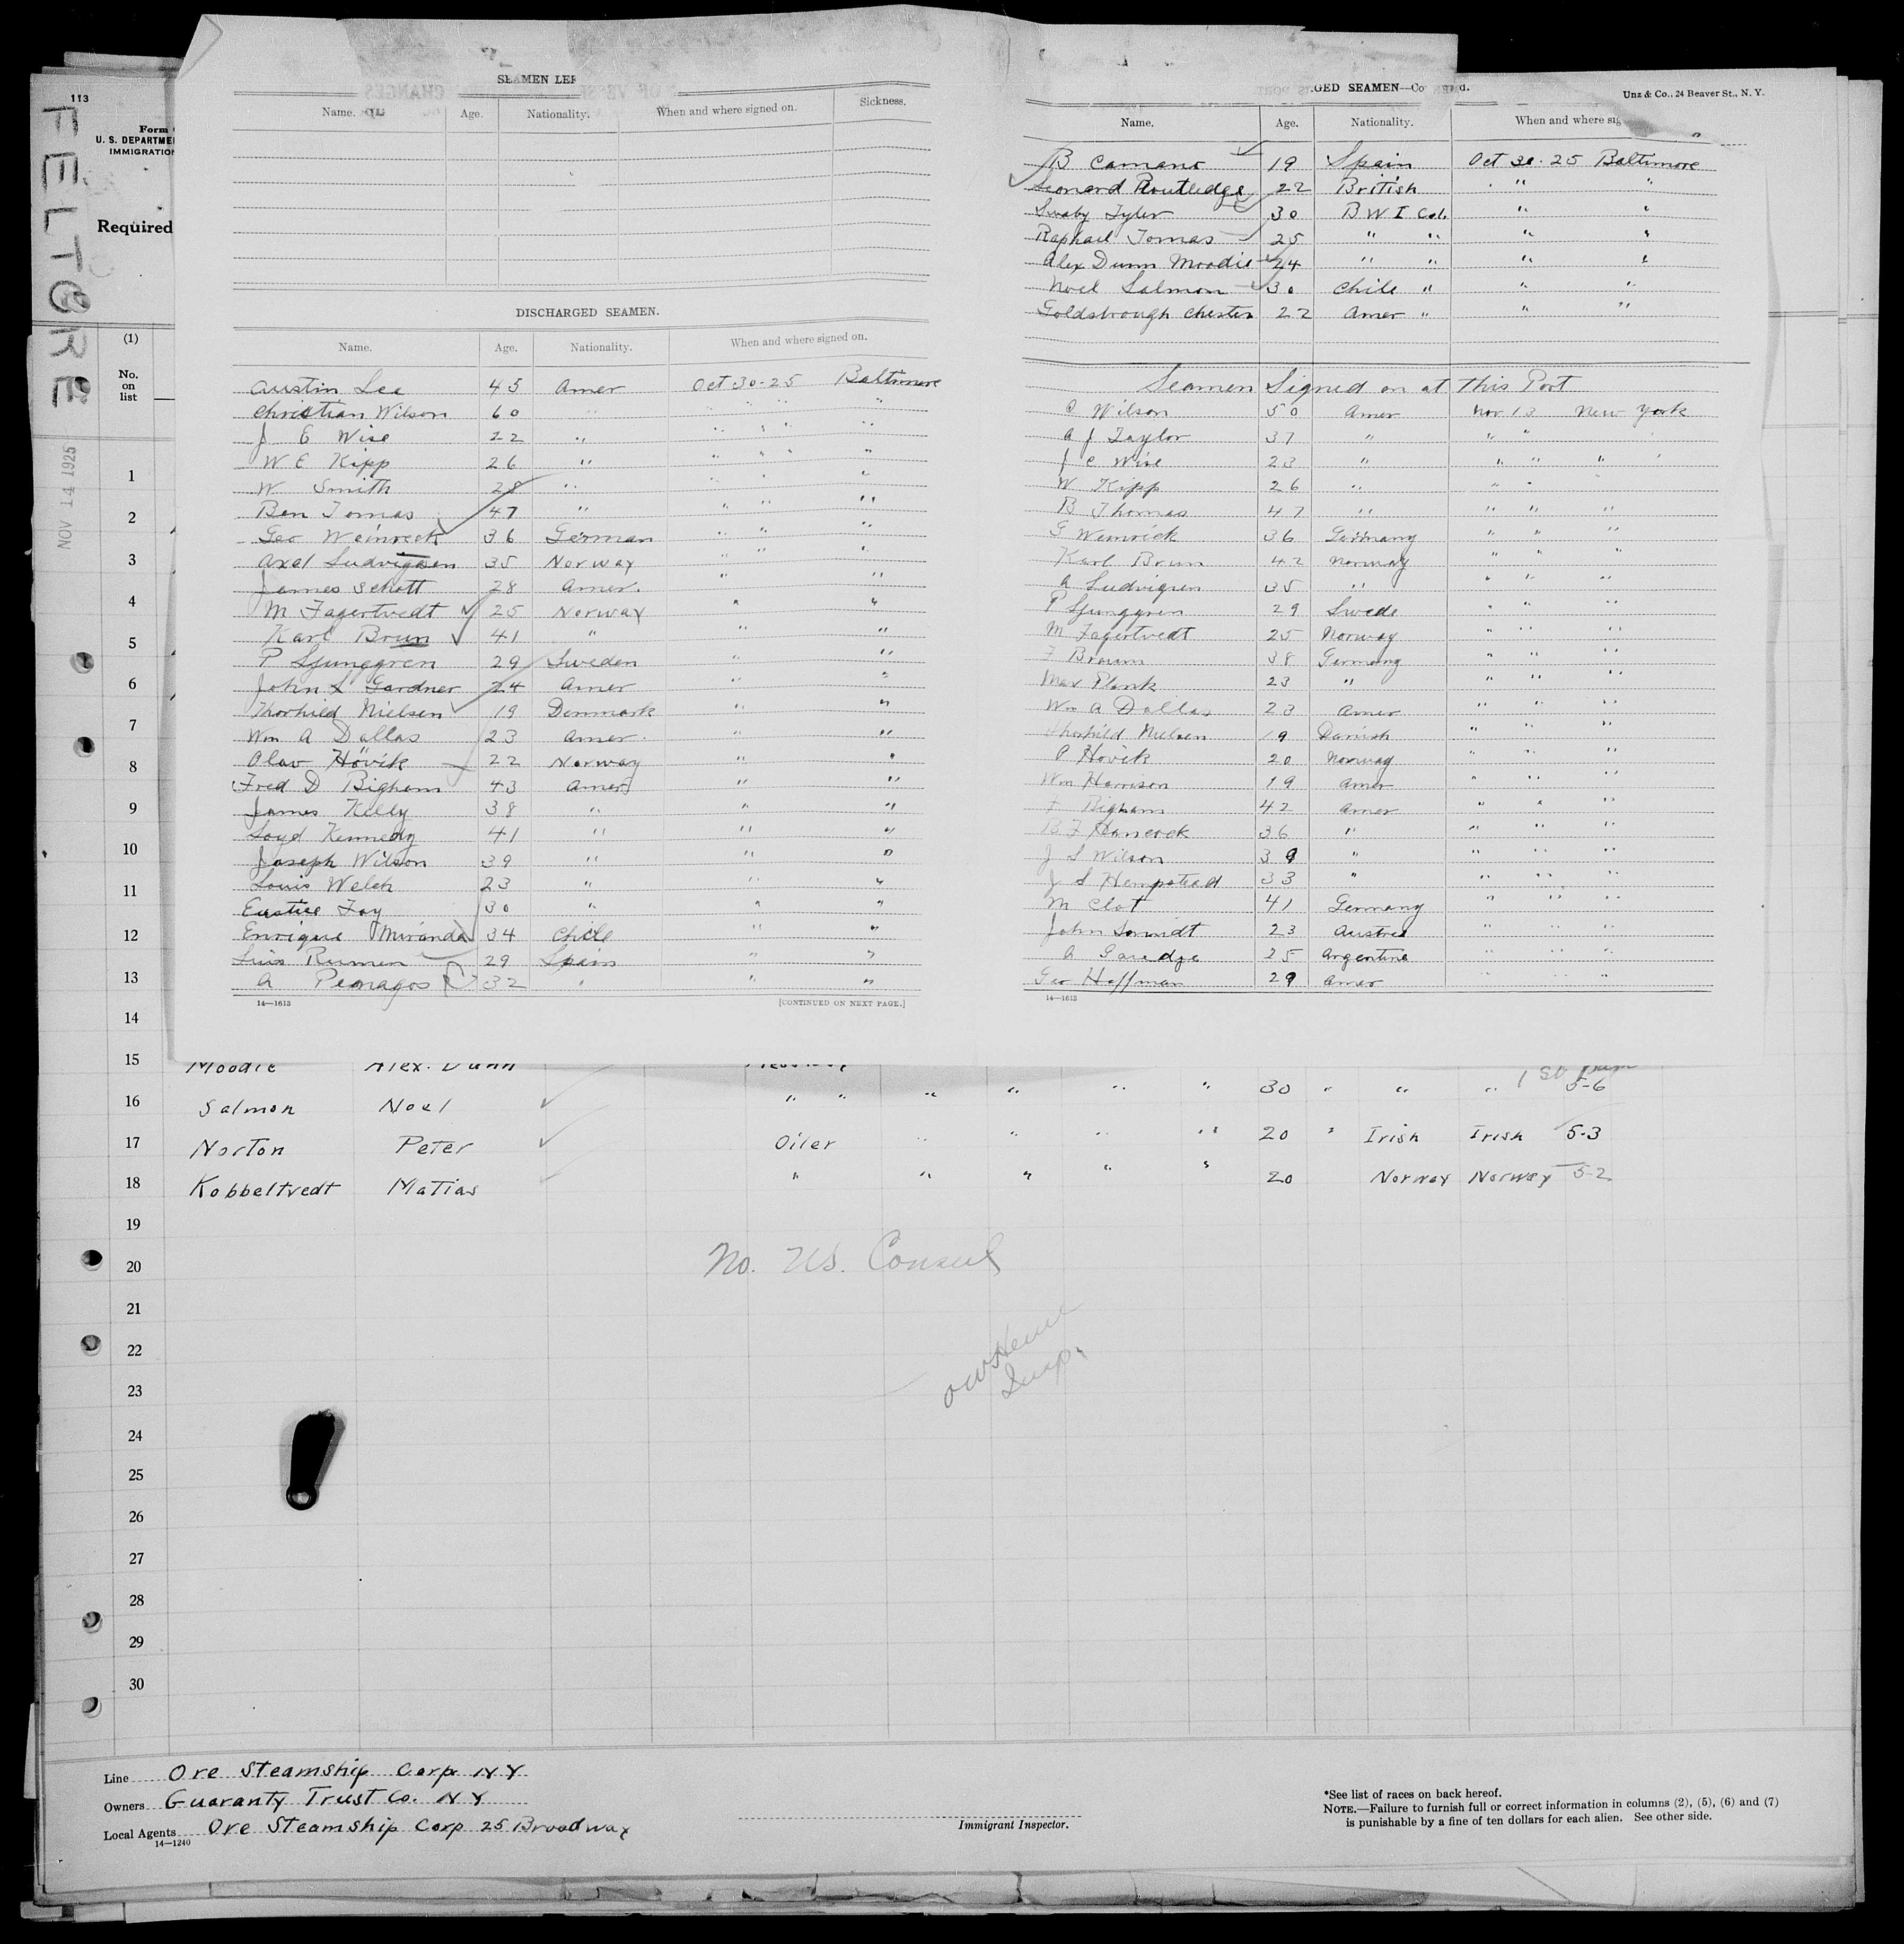 113
FELTORE
NOV 14 1925
Form
U. S. DEPARTME
IMMIGRATION
Required
(1)
No.
on
list
SEAMEN LEF
Name. Age. Nationality. When and where signed on. Sickness.
DISCHARGED SEAMEN.
Name. Age. Nationality. When and where signed on.
Austin Lee 45 Amer Oct 30-25 Baltimore
Christian Wilson 60 " " " " "
J E Wise 22 " " " " "
W E Kipp 26 " " " " "
W Smith 28 " " " "
Ben Tomas 47 " " " "
Geo Weinreck 36 German " " "
Axel Ludvigsen 35 Norway " " "
James Schott 28 Amer. " "
M Fagertvedt 25 Norway " "
Karl Brun 41 " " "
P Ljunggren 29 Sweden " "
John L Gardner 24 Amer " "
Thorhild Nielsen 19 Denmark " "
Wm A Dallas 23 Amer. " "
Olav Hövik 22 Norway " "
Fred D Bigham 43 Amer " "
James Kelly 38 " " "
Loyd Kennedy 41 " " "
Joseph Wilson 39 " " "
Louis Welch 23 " " "
Eustice Foy 30 " " "
Enrique Miranda 34 Chile " "
Luis Rumen 29 Spain " "
A Penagos 32 " " "
14—1613 [CONTINUED ON NEXT PAGE.]
GED SEAMEN—Co d.
Unz & Co., 24 Beaver St., N. Y.
Name. Age. Nationality. When and where sig
B Camano 19 Spain Oct 30-25 Baltimore
Leonard Routledge 22 British " "
Swaby Tyler 30 B W I Col. " "
Raphael Tomas 25 " " " "
Alex Dunn Moodie 24 " " " "
Noel Salmon 30 Chile " " "
Goldsbrough Chester 22 Amer " " "
Seamen Signed on at this Port
C Wilson 50 Amer Nov 13 New York
A J Taylor 37 " " "
J E Wise 23 " " " "
W Kipp 26 " " "
B Thomas 47 " " " "
G Weinrick 36 Germany " " "
Karl Brun 42 Norway " " "
A Ludvigsen 35 " " " "
P Ljunggren 29 Swede " " "
M Fagertvedt 25 Norway " " "
F Braun 38 Germany " " "
Max Plonk 23 " " " "
Wm A Dallas 23 Amer " " "
Thorhild Nielsen 19 Danish " "
O Hövik 20 Norway " " "
Wm Harrison 19 Amer " " "
F Bigham 42 Amer " " "
B F Hancock 36 " " " "
J S Wilson 39 " " " "
J S Hempstead 33 " " " "
M Clot 41 Germany " " "
John Smidt 23 Austria " " "
A Garedge 25 Argentine " " "
Geo Hoffman 29 Amer " " "
14—1613
1
2
3
4
5
6
7
8
9
10
11
12
13
14
15 Moodie Alex. Dunn
16 Salmon Noel " " " " " " 30 " " " 5-6
17 Norton Peter Oiler " " " " 20 " Irish Irish 5-3
18 Kobbeltvedt Matias " " " " " 20 Norway Norway 5-2
19
20 No. US. Consul
21
22
Insp.
23
24
25
26
27
28
29
30
Line Ore Steamship Corp NY
Owners Guaranty Trust Co. NY
Local Agents Ore Steamship Corp 25 Broadway
14—1240
Immigrant Inspector.
*See list of races on back hereof.
NOTE.—Failure to furnish full or correct information in columns (2), (5), (6) and (7)
is punishable by a fine of ten dollars for each alien. See other side.